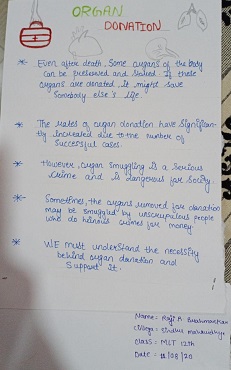 ORGAN
DONATION
* Even after death, Some organs of the body
can be preserved and stored. If these
organs are donated, it might save
somebody else's life
* The rates of organ donation have significan-
tly increased due to the number of
successful cases.
* However, organ smuggling is a serious
crime and is dangerous for society.
* Sometimes, the organs removed for donation
may be smuggled by unscrupulous people
who do heinous crimes for money.
* We must understand the necessity
behind organ donation and
Support it.
Name:- R
College:-
Class:- MLT 12th
Date:- 11/08/20